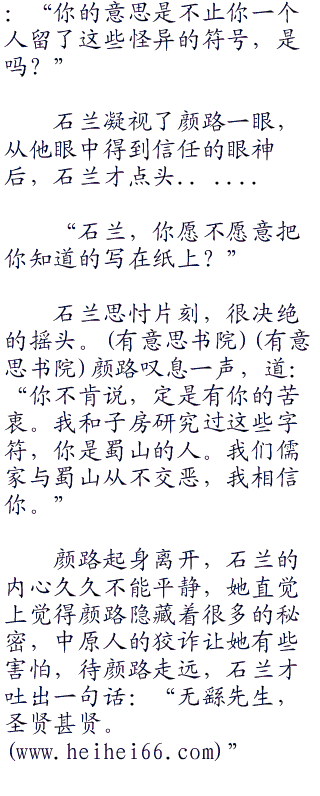 ：“你的意思是不止你一个
人留了这些怪异的符号，是
吗？”
石兰凝视了颜路一眼，
从他眼中得到信任的眼神
后，石兰才点头．．．．．．
“石兰，你愿不愿意把
你知道的写在纸上？”
石兰思忖片刻，很决绝
的摇头。(有意思书院)(有意
思书院)颜路叹息一声，道：
“你不肯说，定是有你的苦
衷。我和子房研究过这些字
符，你是蜀山的人。我们儒
家与蜀山从不交恶，我相信
你。”
颜路起身离开，石兰的
内心久久不能平静，她直觉
上觉得颜路隐藏着很多的秘
密，中原人的狡诈让她有些
害怕，待颜路走远，石兰才
吐出一句话：“无繇先生，
圣贤甚贤。
(www.heihei66.com)”